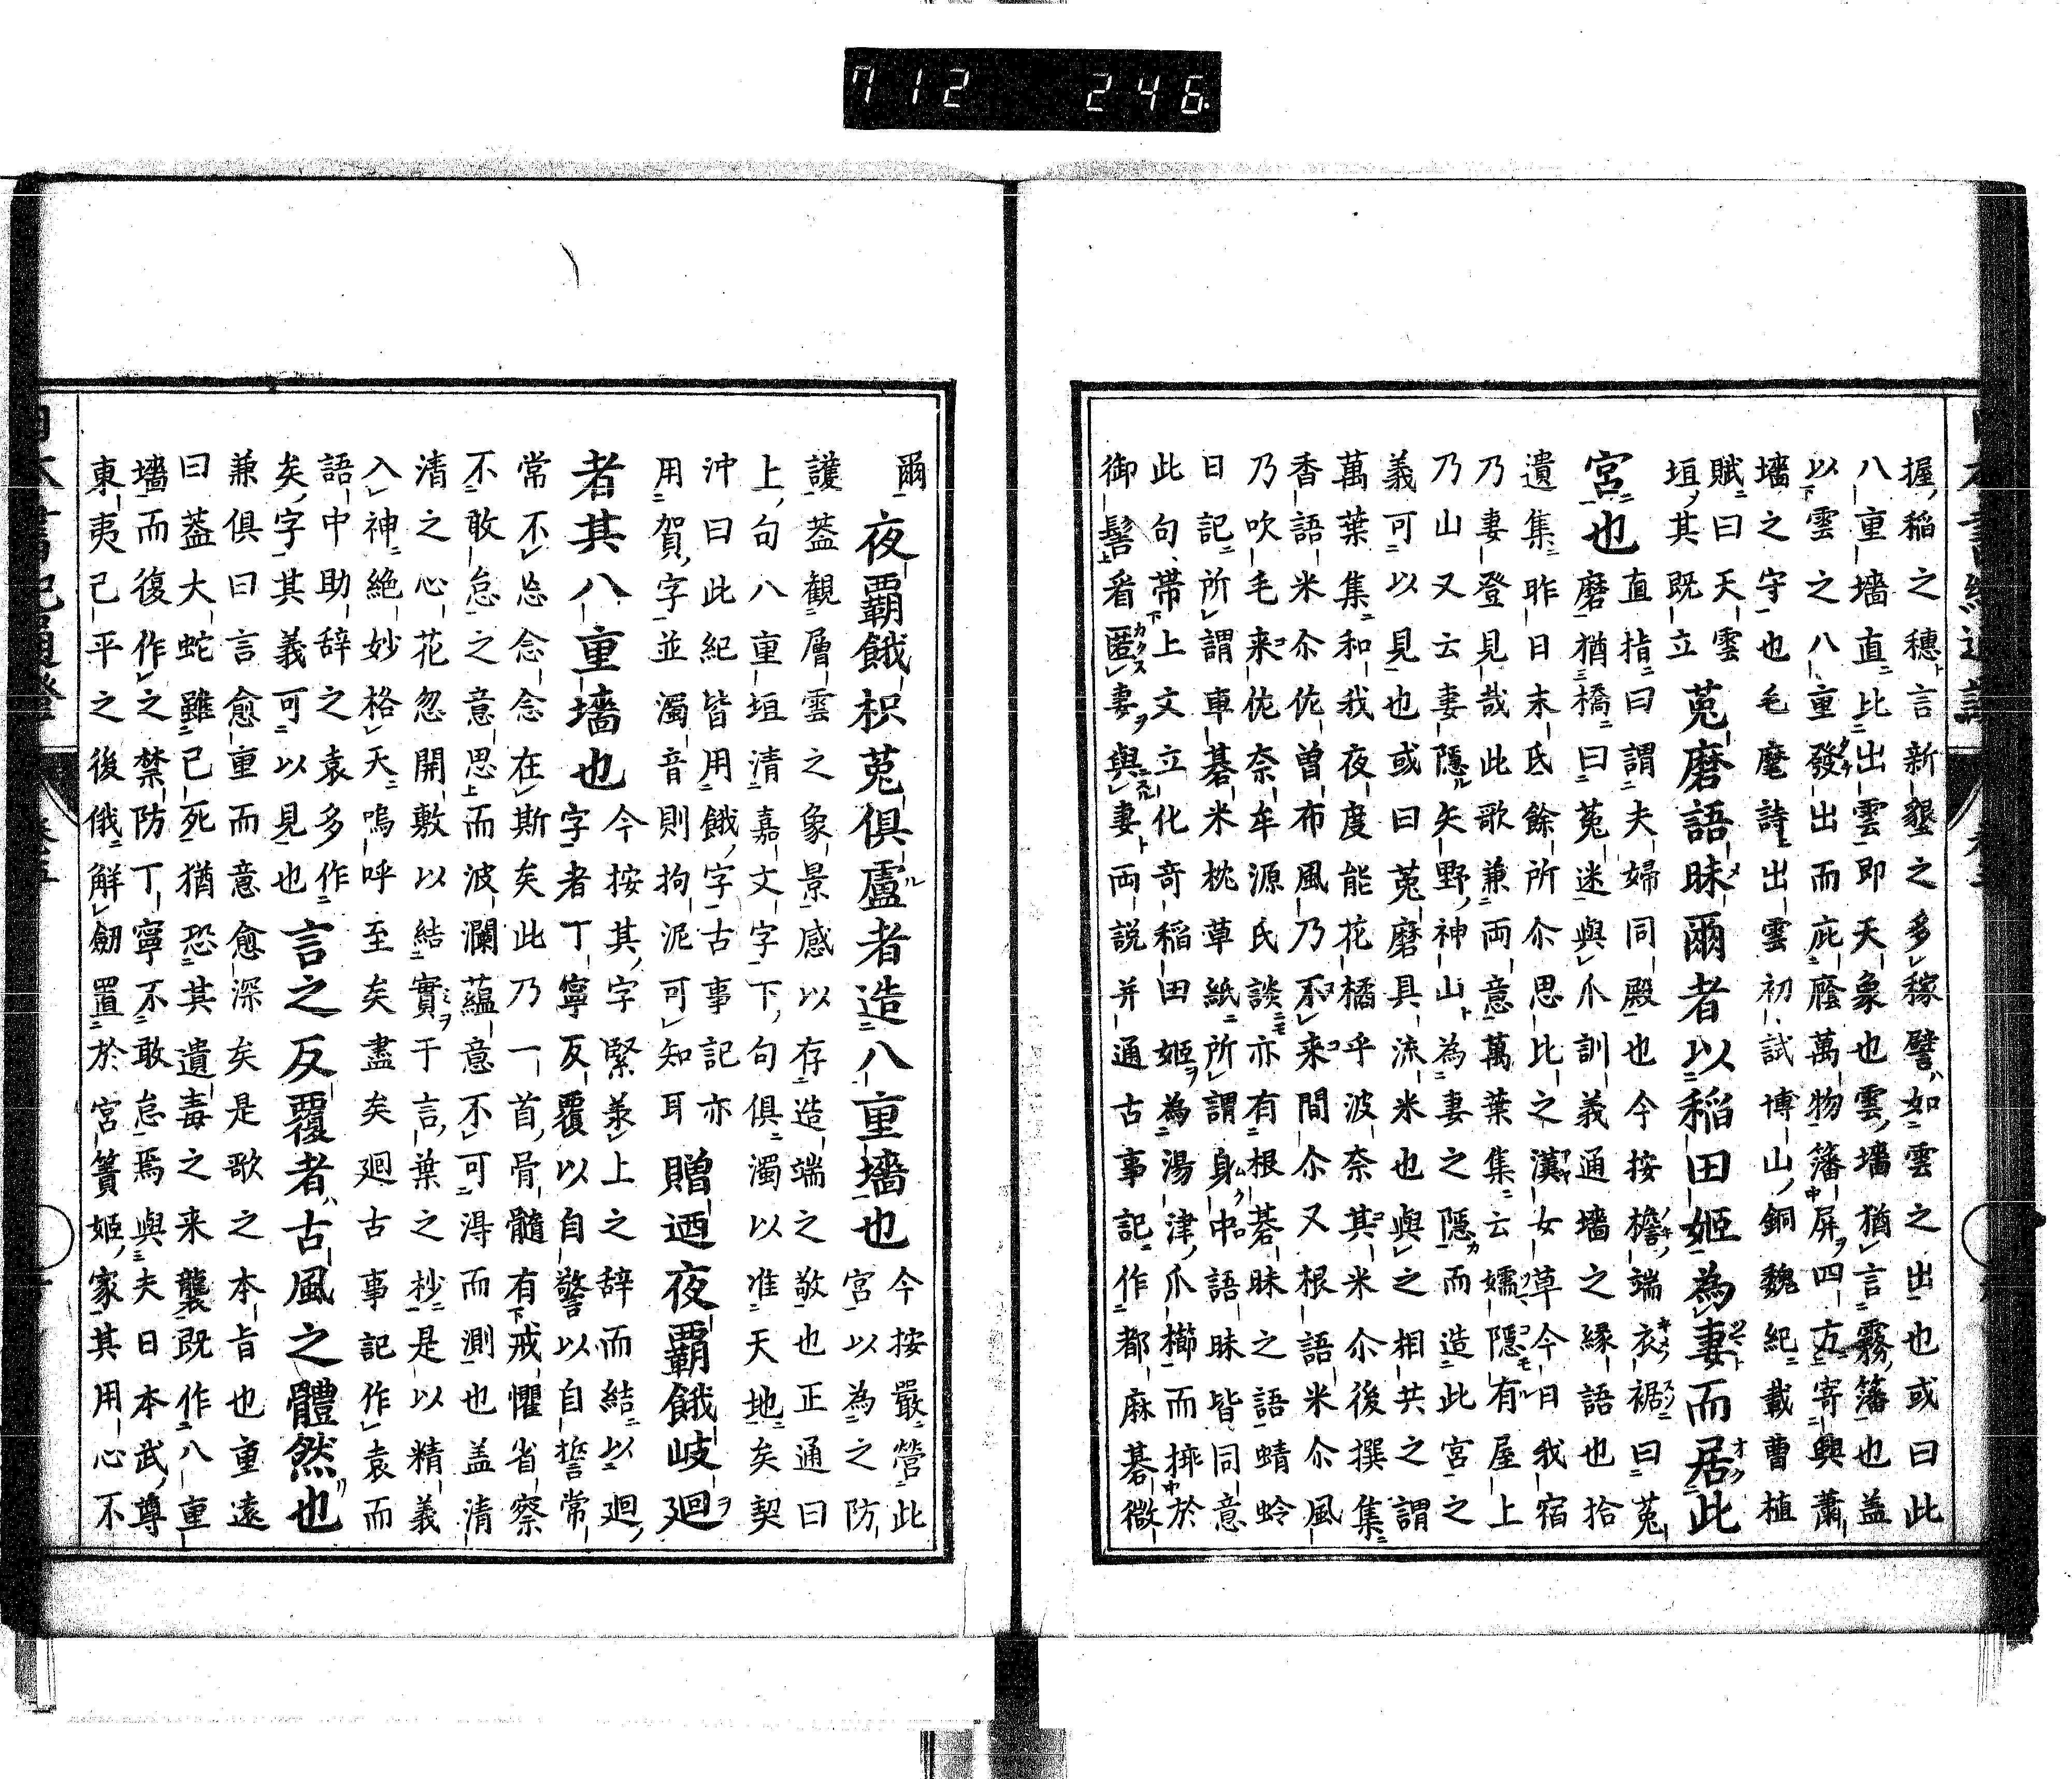 712 246
握稲之穗言新墾之多稼譬如雲之出也或曰此
八重墻直比出雲即天象也雲墻猶言霧籓也盖
以雲之八重發出而庇廕萬物籓屏四方寄興蕭
墻之字也毛麾詩出雲初試博山銅魏紀載曹植
賦曰天雲
垣其既立
菟磨語昧爾者以稲田姬為妻而居此
宮也
直指曰謂夫婦同殿也今按檐端衣裾曰菟
磨猶橋曰菟迷與爪訓義通墻之縁語也拾
遺集昨日末氐餘所尒思比之漢女草今日我宿
乃妻登見哉此歌兼両意萬葉集云嬬隱有屋上
乃山又云妻隱矢野神山為妻之隱而造此宮之
義可以見也或曰菟磨具流米也與之相共之謂
萬葉集和我夜度能花橘乎波奈其米尒後撰集
香語米尒佐曽布風乃不来間尒又根語米尒風
乃吹毛来佐奈牟源氏談亦有根碁昧之語蜻蛉
日記所謂車碁米枕草紙所謂身中語昧皆同意
此句帯上文立化奇稲田姬為湯津爪櫛而挿於
御髻看匿妻與妻両説并通古事記作都麻碁微
爾
夜覇餓枳菟俱盧者造八重墻也
今按嚴營此
宮以為之防
護葢觀層雲之象景感以存造端之敬也正通曰
上句八重垣清嘉文字下句俱濁以准天地矣契
沖曰此紀皆用餓字古事記亦
用賀字並濁音則拘泥可知耳
贈迺夜覇餓岐廻
者其八重墻也
今按其字緊兼上之辞而結以廻
字者丁寧反覆以自警以自誓常
常不忘念念在斯矣此乃一首骨髓有戒懼省察
不敢怠之意思而波瀾蘊意不可得而測也盖清
清之心花忽開敷以結實于言葉之杪是以精義
入神絶妙格天嗚呼至矣盡矣廻古事記作袁而
語中助辞之袁多作
矣字其義可以見也
言之反覆者古風之體然也
兼俱曰言愈重而意愈深矣是歌之本旨也重遠
曰葢大蛇雖已死猶恐其遺毒之来襲既作八重
墻而復作之禁防丁寧不敢怠焉與夫日本武尊
東夷己平之後俄解劒置於宮簀姬家其用心不